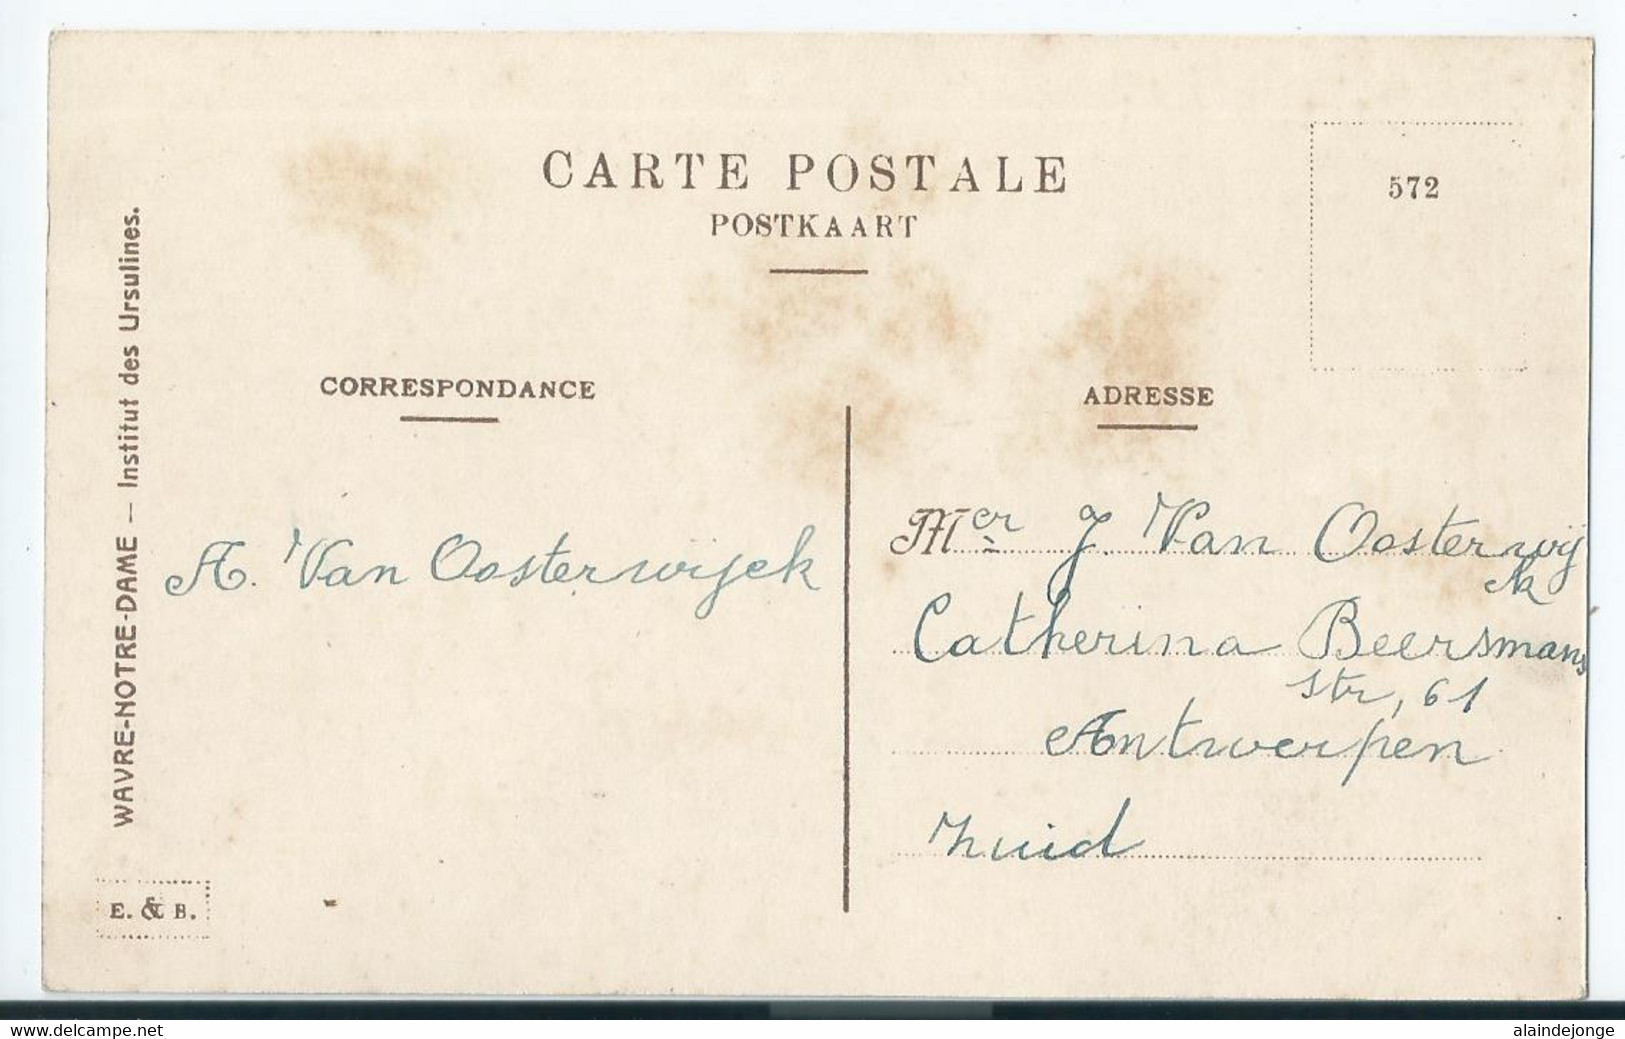 CARTE POSTALE
POSTKAART
572
WAVRE-NOTRE-DAME — Institut des Ursulines.
CORRESPONDANCE
ADRESSE
A. Van Oosterwijck
Mer J. Van Oosterwij
ck
Catherina Beersmans
str, 61
Antwerpen
Zuid
E. & B.
www.delcampe.net
alaindejonge